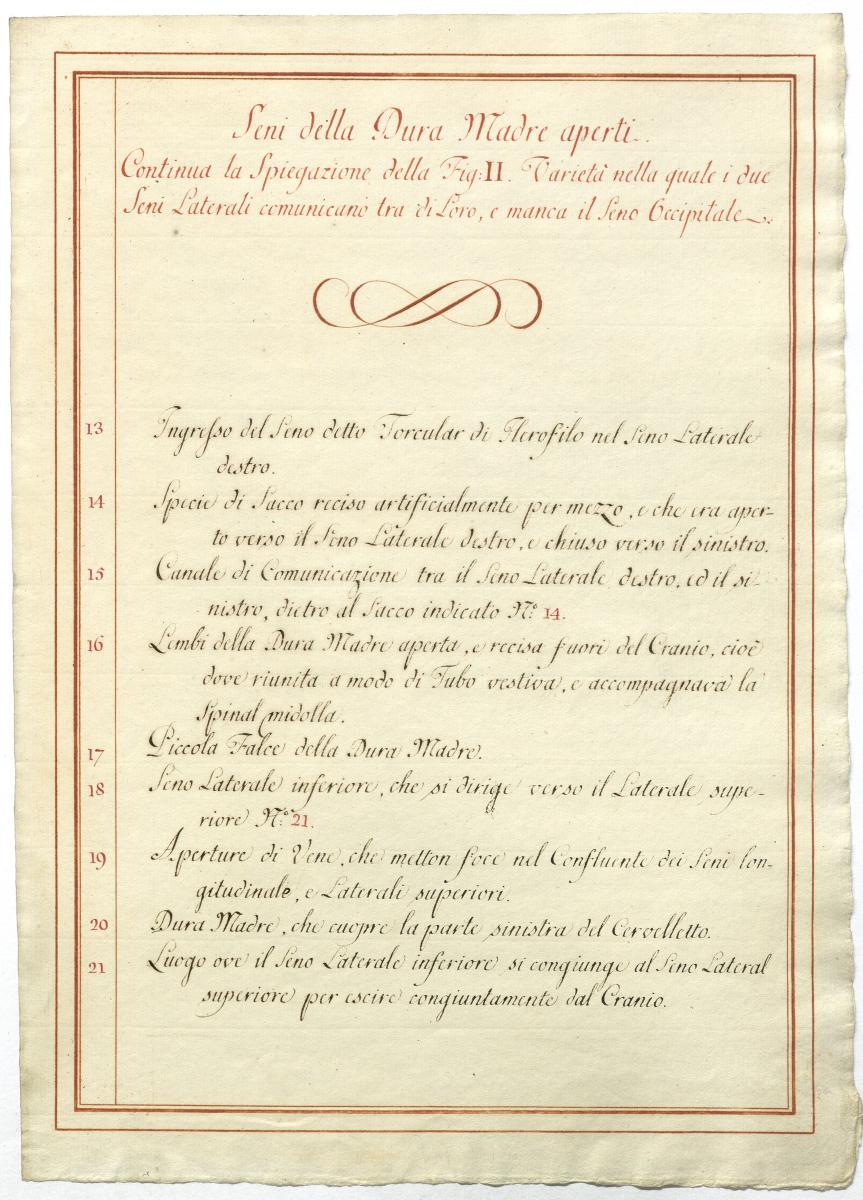 Seni della Dura Madre aperti.
Continua la Spiegazione della Fig: II. Varietà nella quale i due
Seni Laterali comunicano tra di Loro, e manca il Seno Occipitale.
13 Ingresso del Seno detto Torcular di Herofilo nel Seno Laterale
destro.
14 Specie di Sacco reciso artificialmente per mezzo, e che era aper-
to verso il Seno Laterale destro, e chiuso verso il sinistro.
15 Canale di Comunicazione tra il Seno Laterale destro, ed il si-
nistro, dietro al Sacco indicato N.º 14.
16 Lembi della Dura Madre aperta, e recisa fuori del Cranio, cioè
dove riunita a modo di Tubo vestiva, e accompagnava la
Spinal midolla.
17 Piccola Falce della Dura Madre.
18 Seno Laterale inferiore, che si dirige verso il Laterale supe-
riore N.º 21.
19 Aperture di Vene, che metton foce nel Confluente dei Seni lon-
gitudinale, e Laterali superiori.
20 Dura Madre, che cuopre la parte sinistra del Cervelletto.
21 Luogo ove il Seno Laterale inferiore si congiunge al Seno Lateral
superiore per escire congiuntamente dal Cranio.